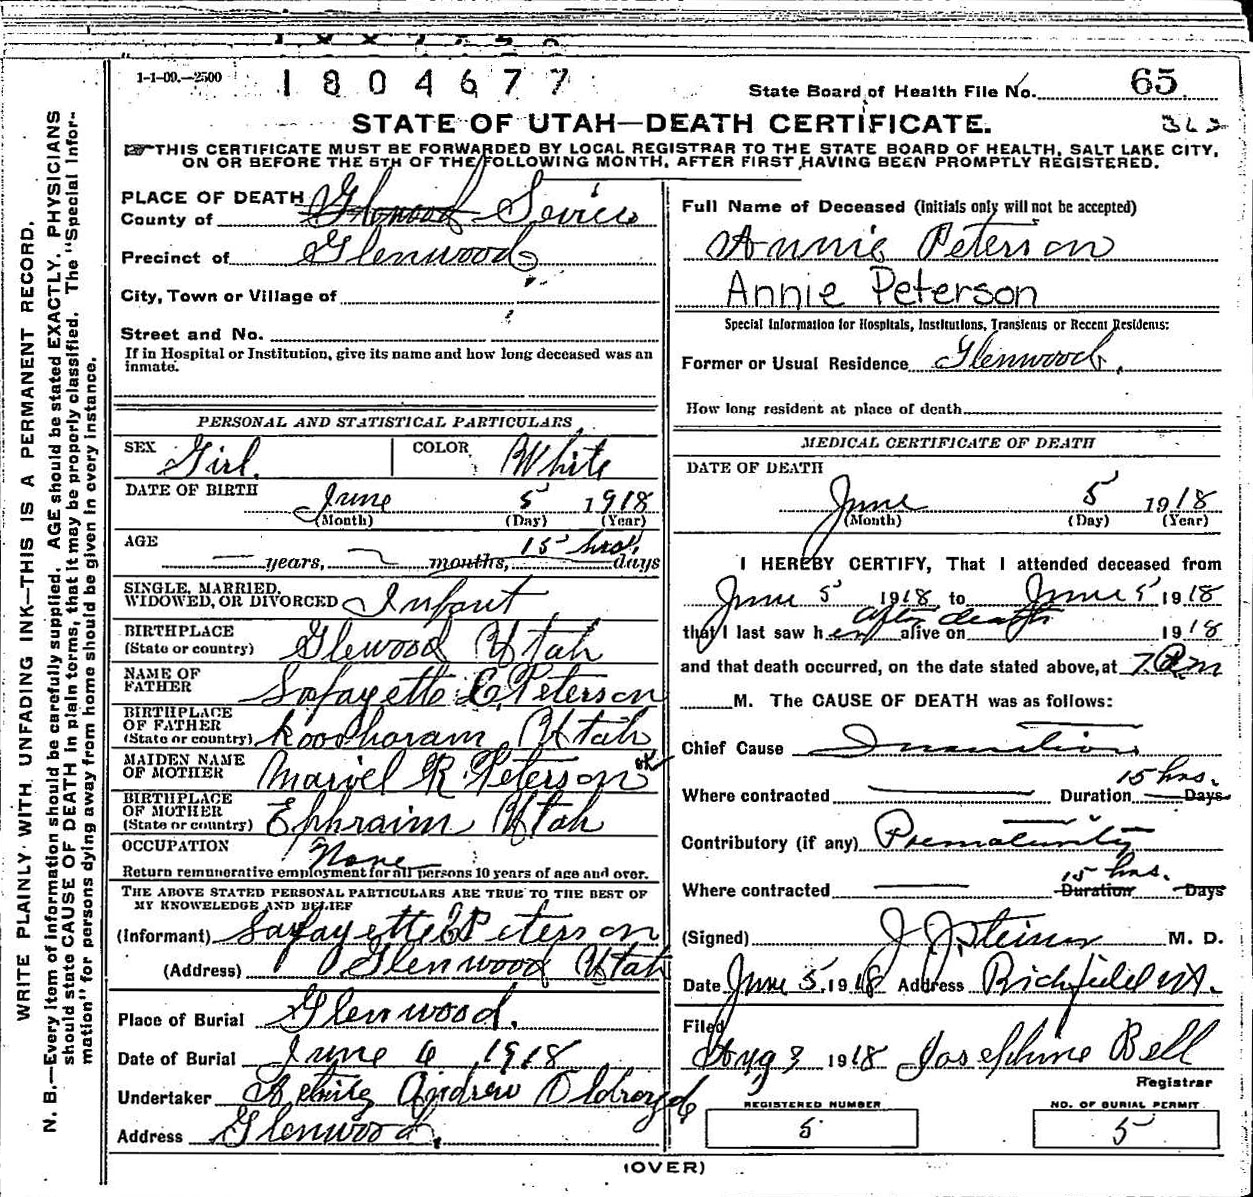 1-1-09.—2500
1804677
State Board of Health File No. 65
STATE OF UTAH—DEATH CERTIFICATE.
362
THIS CERTIFICATE MUST BE FORWARDED BY LOCAL REGISTRAR TO THE STATE BOARD OF HEALTH, SALT LAKE CITY,
ON OR BEFORE THE 5TH OF THE FOLLOWING MONTH, AFTER FIRST HAVING BEEN PROMPTLY REGISTERED.
WRITE PLAINLY WITH UNFADING INK—THIS IS A PERMANENT RECORD.
N. B.—Every item of information should be carefully supplied. AGE should be stated EXACTLY. PHYSICIANS
should state CAUSE OF DEATH in plain terms, that it may be properly classified. The "Special Infor-
mation" for persons dying away from home should be given in every instance.
PLACE OF DEATH
County of Glenwood Sevier
Precinct of Glenwood
City, Town or Village of
Street and No.
If in Hospital or Institution, give its name and how long deceased was an
inmate.
PERSONAL AND STATISTICAL PARTICULARS
SEX Girl. COLOR White
DATE OF BIRTH
June 5 1918
(Month) (Day) (Year)
AGE
years, months, 15 hrs. days
SINGLE, MARRIED,
WIDOWED, OR DIVORCED Infant
BIRTHPLACE
(State or country) Glewood Utah
NAME OF
FATHER Lafayette C. Peterson
BIRTHPLACE
OF FATHER
(State or country) Koosharam Utah
MAIDEN NAME
OF MOTHER Marvel R. Peterson ok
BIRTHPLACE
OF MOTHER
(State or country) Ephraim Utah
OCCUPATION None
Return remunerative employment for all persons 10 years of age and over.
THE ABOVE STATED PERSONAL PARTICULARS ARE TRUE TO THE BEST OF
MY KNOWELEDGE AND BELIEF
(Informant) Lafayette C Peterson
(Address) Glenwood Utah
Place of Burial Glenwood.
Date of Burial June 6, 1918
Undertaker Andrew Oldroyd
Address Glenwood.
Full Name of Deceased (Initials only will not be accepted)
Annie Peterson
Annie Peterson
Special Information for Hospitals, Institutions, Transients or Recent Residents:
Former or Usual Residence Glenwood,
How long resident at place of death
MEDICAL CERTIFICATE OF DEATH
DATE OF DEATH
June 5 1918
(Month) (Day) (Year)
I HEREBY CERTIFY, That I attended deceased from
June 5 1918 to June 5 1918
that I last saw her alive on after death 1918
and that death occurred, on the date stated above, at 7. P m
M. The CAUSE OF DEATH was as follows:
Chief Cause Inanition
Where contracted Duration 15 hrs. Days
Contributory (if any) Prematurity
Where contracted Duration 15 hrs. Days
(Signed) J. J. Steiner M. D.
Date June 5. 1918 Address Richfield Ut.
Filed
Aug 3 1918 Josephine Bell
Registrar
REGISTERED NUMBER
5
NO. OF BURIAL PERMIT
5
(OVER)